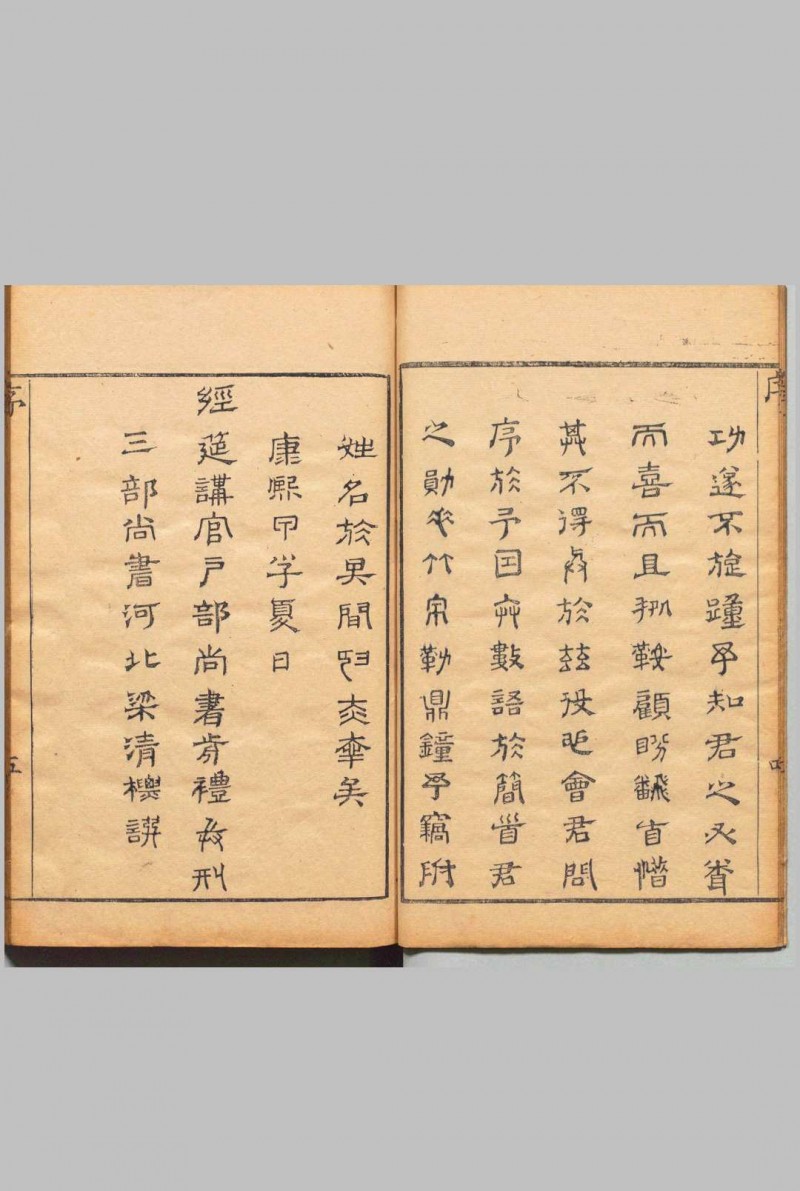 序
功遂不旋踵予知君之必
而喜而且執鞍顧盼翻自惜
其不得與於茲役也會君問
序於予因弁數語於簡首君
之勛垂竹帛勒鼎鐘予竊附
姓名於其間抑亦幸矣
康熙甲子夏日
經筵講官戶部尚書前禮兵刑
三部尚書河北梁清標譔
序
五